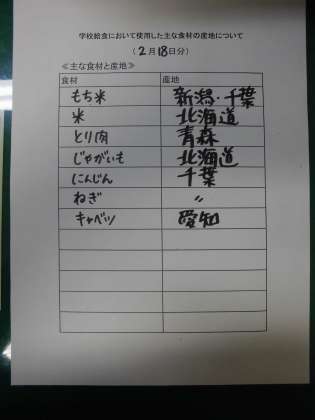 学校給食において使用した主な食材の産地について
(2月18日分)
≪主な食材と産地≫
食材 産地
もち米 新潟・千葉
米 北海道
とり肉 青森
じゃがいも 北海道
にんじん 千葉
ねぎ 〃
キャベツ 愛知